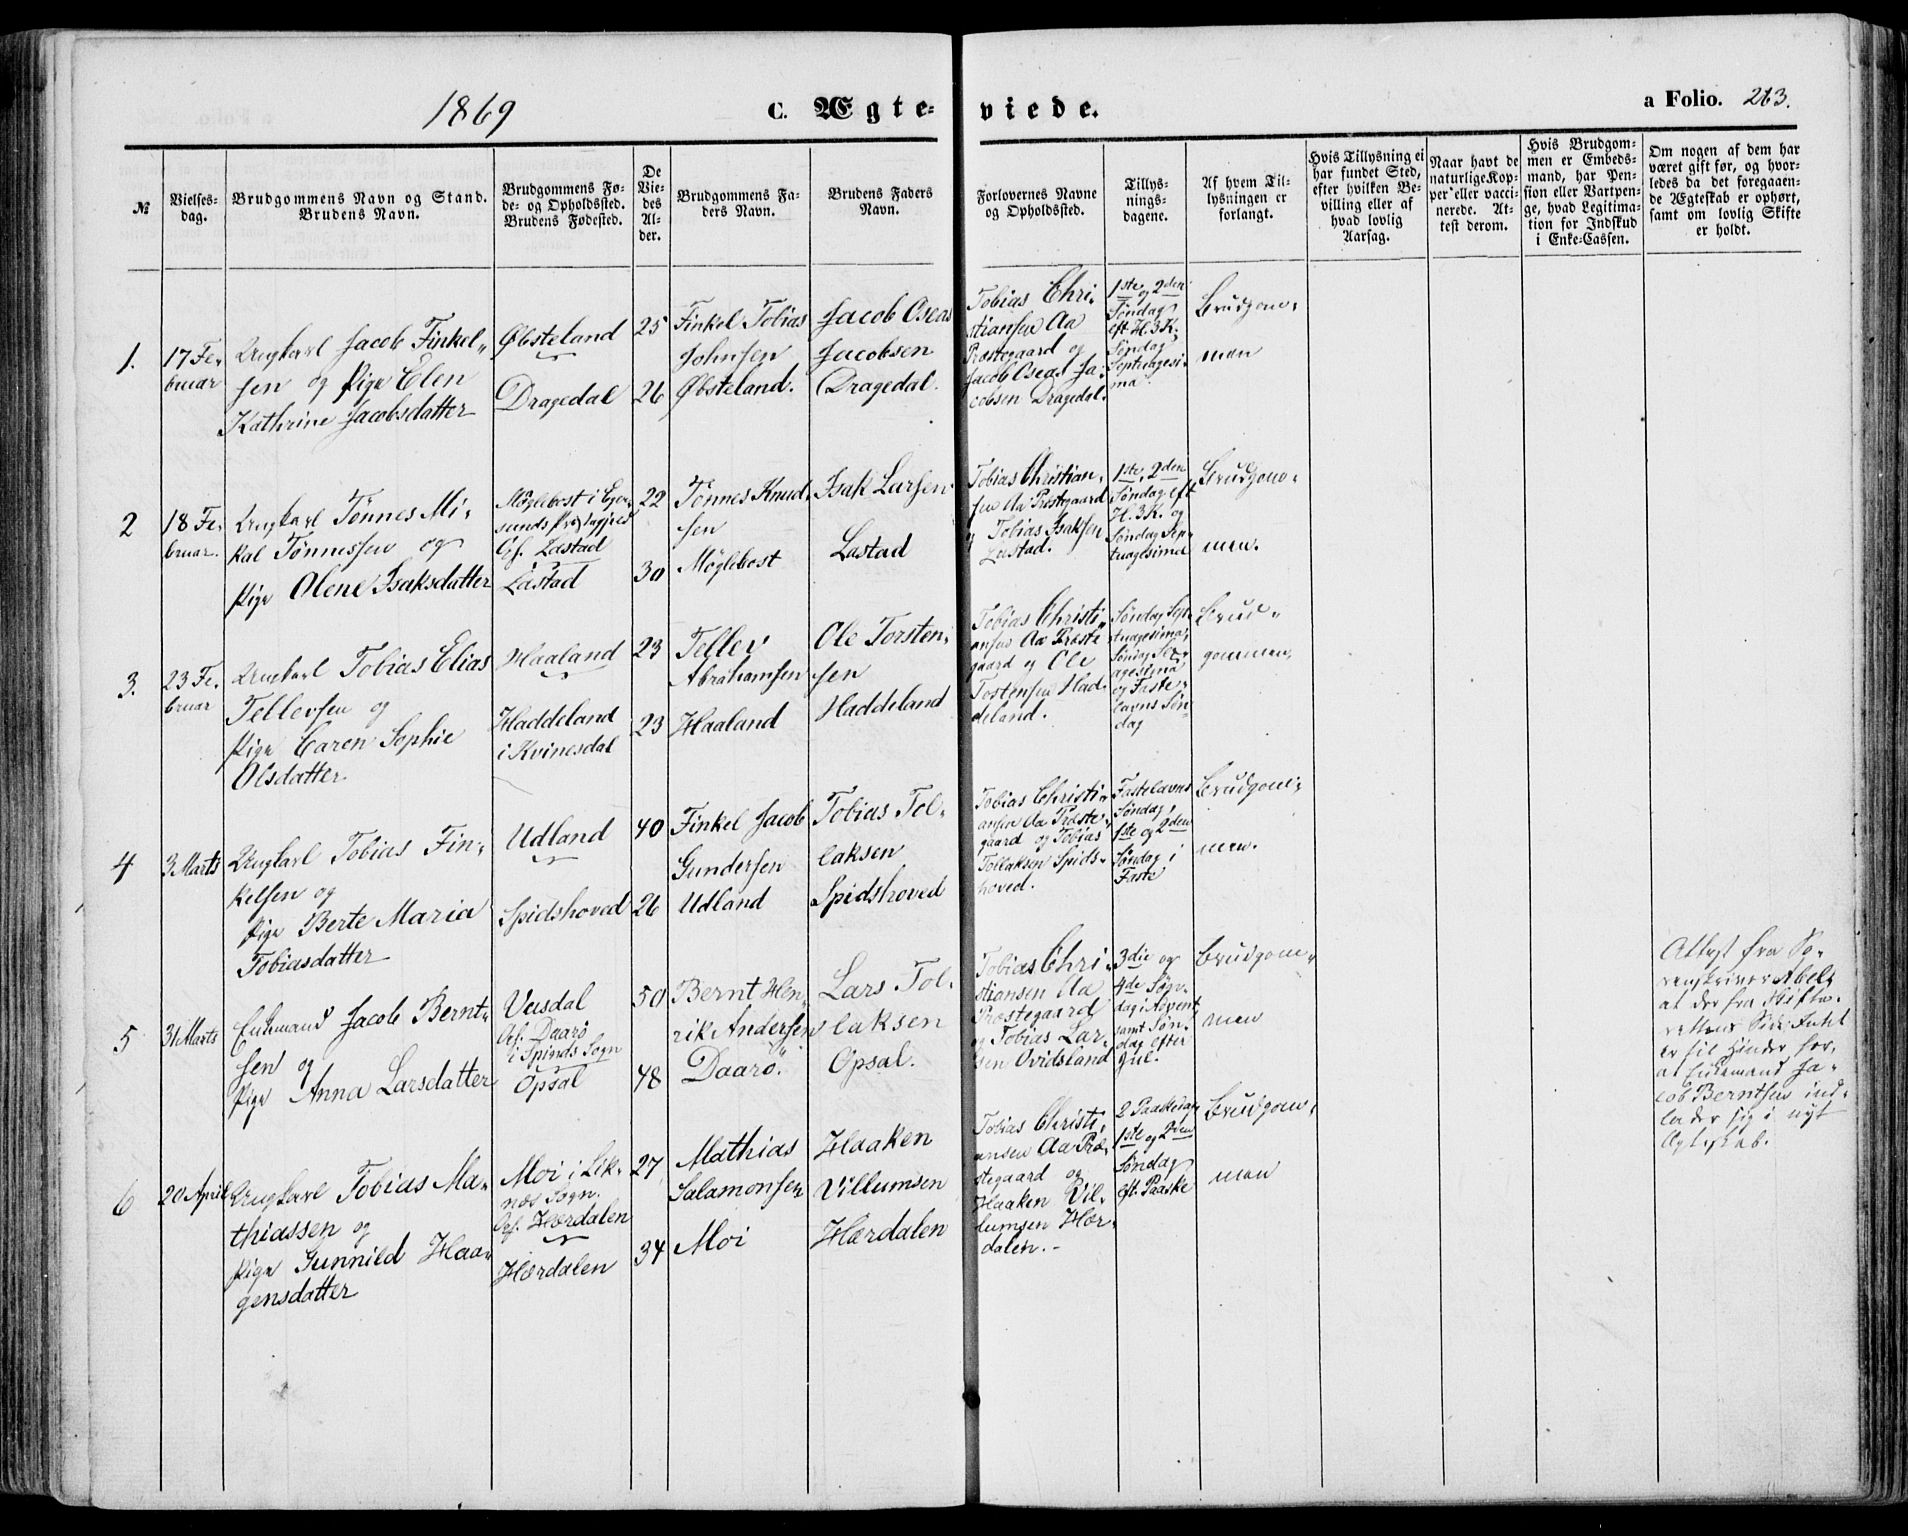 1869
C. Ægte-
viede.
a Folio. 263.
№
Vielses-
dag.
Brudgommens Navn og Stand.
Brudens Navn.
Brudgommens Fø-
de- og Opholdssted.
Brudens Fødested.
De
Vie-
des
Al-
der.
Brudgommens Fa-
ders Navn.
Brudens Faders
Navn.
Forlovernes Navne
og Opholdssted.
Tillys-
nings-
dagene.
Af hvem Til-
lysningen er
forlangt.
Hvis Tillysning ei
har fundet Sted,
efter hvilken Be-
villing eller af
hvad lovlig
Aarsag.
Naar havt de
naturlige Kop-
per eller vacci-
nerede. At-
test derom.
Hvis Brudgom-
men er Embeds-
mand, har Pen-
sion eller Vartpen-
ge, hvad Legitima-
tion for Indskud
i Enke-Cassen.
Om nogen af dem har
været gift før, og hvor-
ledes da det foregaaen-
de Ægteskab er ophørt,
samt om lovlig Skifte
er holdt.
1.
17 Fe-
bruar
Ungkarl Jacob Finkel-
sen og Pige Elen
Kathrine Jacobsdatter
Øbsteland
Dragedal
25
26
Finkel Tobias
Johnsen
Øbsteland.
Jacob Oseas
Jacobsen
Dragedal.
Tobias Chri-
stiansen Aa
Præstegaard og
Jacob Oseas Ja-
cobsen Dragedal.
1ste og 2den
Søndag
eft. H. 3 K.
Søndag
Septuagesi-
ma.
Brudgom-
men
2
18 Fe-
bruar.
Ungkarl Tönnes Mi-
kal Tönnessen og
Pige Olene Isaksdatter
Møglebost i Eger-
sunds Præstegjeld
Of. Lastad
Lastad
22
30
Tönnes Knud-
sen
Møglebost
Isak Larsen
Lastad
Tobias Christian-
sen Aa Præstgaard
og Tobias Isaksen
Lastad.
1ste, 2den
Søndag eft
H. 3 K. og
Søndag Sep-
tuagesima
Brudgom-
men.
3.
23 Fe-
bruar
Ungkarl Tobias Elias
Tellevsen og
Pige Caren Sophie
Olsdatter
Haaland
Haddeland
i Kvinesdal
23
23
Tellev
Abrahamsen
Haaland
Ole Torsten-
sen
Haddeland
Tobias Christi-
ansen Aa Præste
gaard og Ole
Tostensen Had-
deland.
Søndag Sep-
tuagesima,
Søndag Sex-
agesima
og Faste-
lavns Søn-
dag
Brud-
gommen,
4
3 Marts
Ungkarl Tobias Fin-
kelsen og
Pige Berte Maria
Tobiasdatter
Udland
Spidshoved
40
26
Finkel Jacob
Gundersen
Udland
Tobias Tol-
laksen
Spidshoved
Tobias Christi-
ansen Aa Præste-
gaard og Tobias
Tollaksen Spids-
hoved.
Fastelavns
Søndag,
1ste og 2den
Søndag i
Faste
Brudgom-
men.
5
31 Marts
Enkemand Jacob Bernt-
sen og
Pige Anna Larsdatter
Veisdal
Of. Daarø
i Spinds Sogn
Opsal
50
48
Bernt Hen-
rik Andersen
Daarö.
Lars Tol-
laksen
Opsal.
Tobias Chri-
stiansen Aa
Præstegaard
og Tobias Lar-
sen Ovidsland
3die og
4de Søn-
dag i Advent
samt Søn-
dag efter
Jul.
Brudgom-
men
Attest fra So-
renskriver Abel,
at der fra Skifte-
rettens Side Intet
er til Hinder for,
at Enkemand Ja-
cob Berntsen ind-
lader sig i nyt
Ægteskab.
6
20 April
Ungkarl Tobias Ma-
thiassen og
Pige Gunnild Haa-
gensdatter
Moi i Lik-
næs Sogn.
Of. Hærdalen
Hærdalen
27
34
Mathias
Salamonsen
Moi
Haaken
Villumsen
Hærdalen
Tobias Christi-
ansen Aa Præ-
stegaard og
Haaken Vil-
lumsen Hær-
dalen.
2 Paaskedag
1ste og 2den
Søndag
eft. Paaske
Brudgom-
men